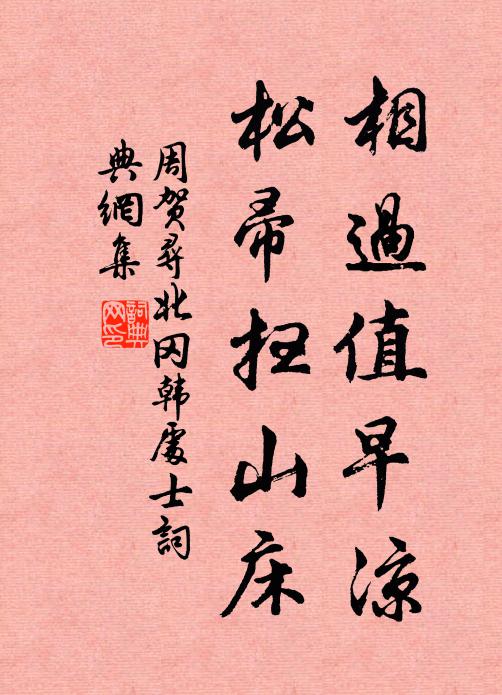 相過值早涼
松帚扫山床
周贺尋北冈韩處士詞
典網集
詞典
网印